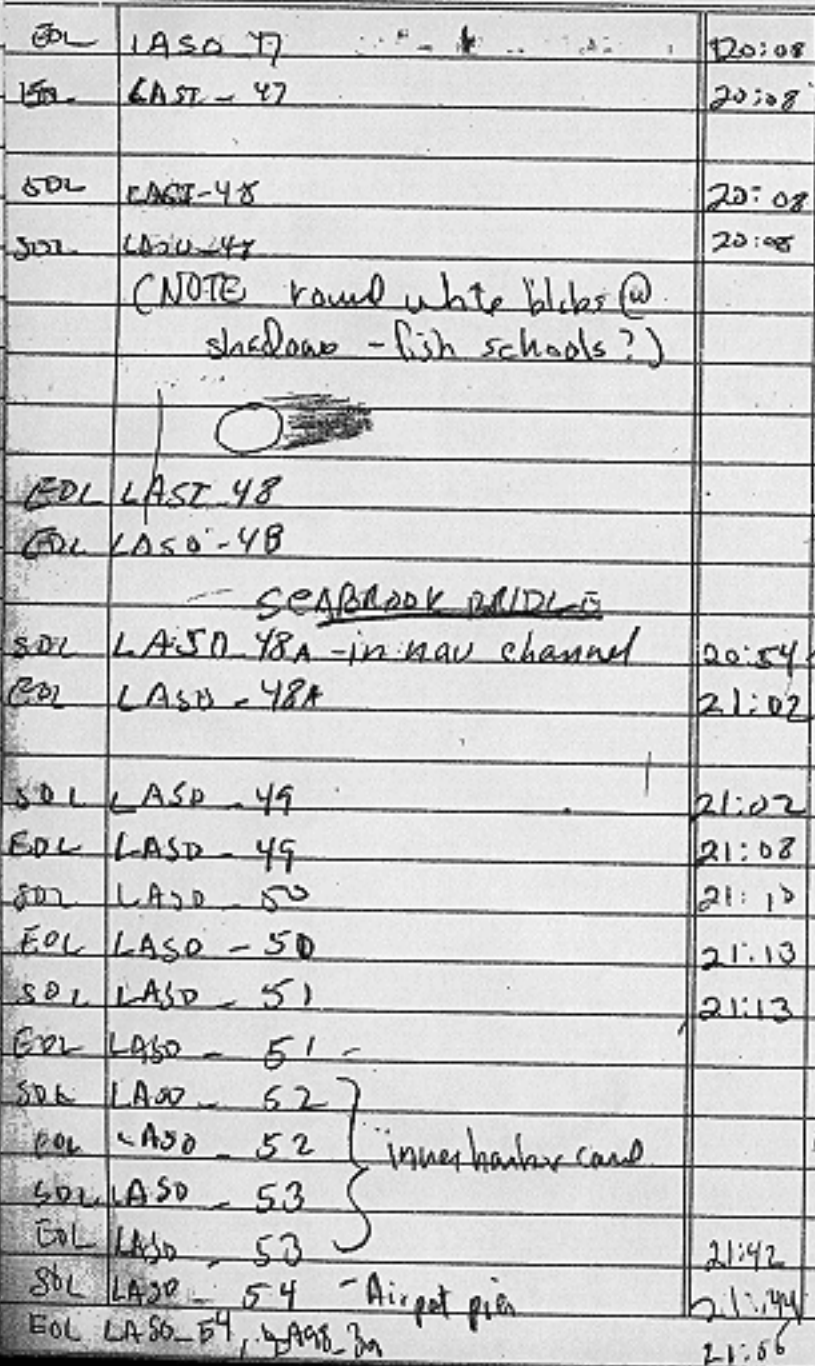 EOL LASO_47 20:08
EOL LAST_47 20:08
SOL LAST-48 20:08
SOL LASO_48 20:08
(NOTE round white blobs @
shadows - fish schools?)
EOL LAST_48
EOL LASO-48
SEABROOK BRIDGE
SOL LASO_48A - in nav channel 20:54
EOL LASO_48A 21:02
SOL LASO_49 21:02
EOL LASO_49 21:08
SOL LASO_50 21:10
EOL LASO_50 21:13
SOL LASO_51 21:13
EOL LASO_51
SOL LASO_52
EOL LASO_52 inner harbor canal
SOL LASO_53
EOL LASO_53 21:42
SOL LASO_54 - Airport pier 21:44
EOL LASO_54, 21:56